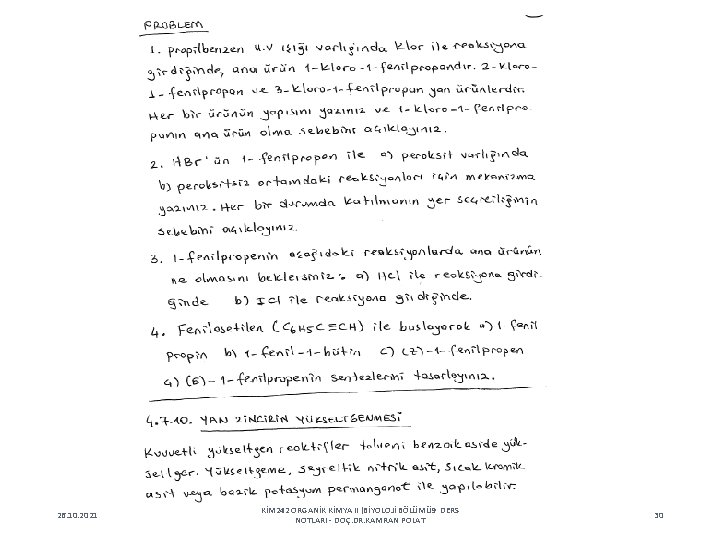 PROBLEM
1. propilbenzen U.V ışığı varlığında klor ile reaksiyona
girdiğinde, ana ürün 1-kloro-1-fenilpropandır. 2-kloro-
1-fenilpropan ve 3-kloro-1-fenilpropan yan ürünlerdir.
Her bir ürünün yapısını yazınız ve 1-kloro-1-fenilpro
panın ana ürün olma sebebini açıklayınız.
2. HBr'ün 1-fenilpropen ile a) peroksit varlığında
b) peroksitsiz ortamdaki reaksiyonları için mekanizma
yazınız. Her bir durumda katılmanın yer seçiciliğinin
sebebini açıklayınız.
3. 1-fenilpropenin aşağıdaki reaksiyonlarda ana ürünün
ne olmasını beklersiniz: a) HCl ile reaksiyona girdi-
ğinde b) ICl ile reaksiyona girdiğinde.
4. Fenilasetilen (C6H5C≡CH) ile başlayarak a) 1 fenil
propin b) 1-fenil-1-bütin c) (Z)-1-fenilpropen
4) (E)-1-fenilpropenin sentezlerini tasarlayınız.
4.7.10. YAN ZİNCİRİN YÜKSELTGENMESİ
Kuvvetli yükseltgen reaktifler tolueni benzoik aside yük-
seltger. Yükseltgeme, seyreltik nitrik asit, sıcak kromik
asit veya bazik potasyum permanganat ile yapılabilir.
26.10.2021
KİM242 ORGANİK KİMYA II (BİYOLOJİ BÖLÜMÜ)- DERS
NOTLARI - DOÇ.DR.KAMRAN POLAT
30